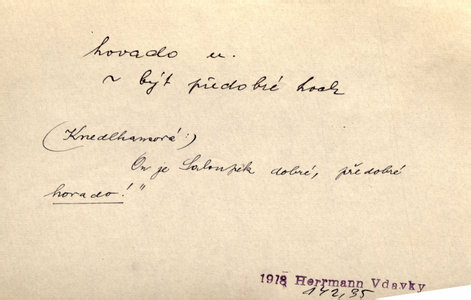 hovado n.
~ být předobré hovado
(Knedlhansová:)
On je Saloupěk dobré, předobré
hovado!"
1918 Herrmann Vdavky
142,95